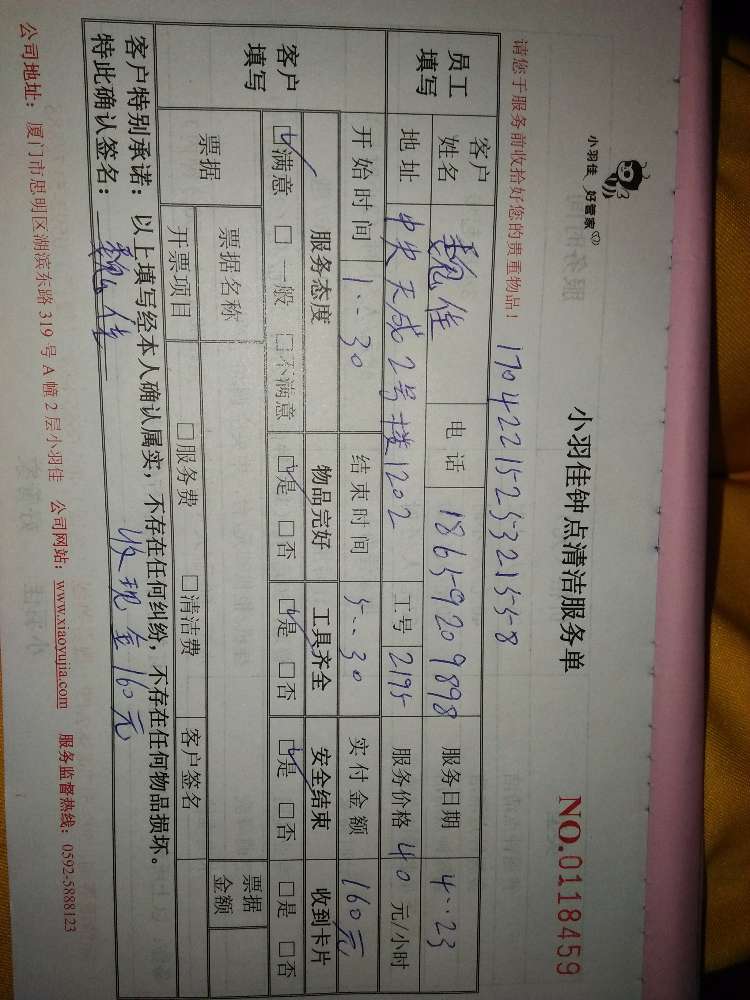 小羽佳 好管家
小羽佳钟点清洁服务单
NO.0118459
请您于服务前收拾好您的贵重物品！
17042215233215558
员工填写 客户姓名 魏佳 电话 18659209898 服务日期 4..23
地址 中央天成2号楼1202 工号 2195 服务价格 40 元/小时
开始时间 1..30 结束时间 5..30 实付金额 160元
客户填写 服务态度 物品完好 工具齐全 安全结束 收到卡片
☑满意 □一般 □不满意 ☑是 □否 ☑是 □否 ☑是 □否 □是 □否
票据 票据名称 票据金额
开票项目 □服务费 □清洁费 客户签名
客户特别承诺：以上填写经本人确认属实，不存在任何纠纷，不存在任何物品损坏。
特此确认签名：魏佳 收现金160元
公司地址：厦门市思明区湖滨东路319号A幢2层小羽佳 公司网站：www.xiaoyujia.com 服务监督热线：0592-5888123